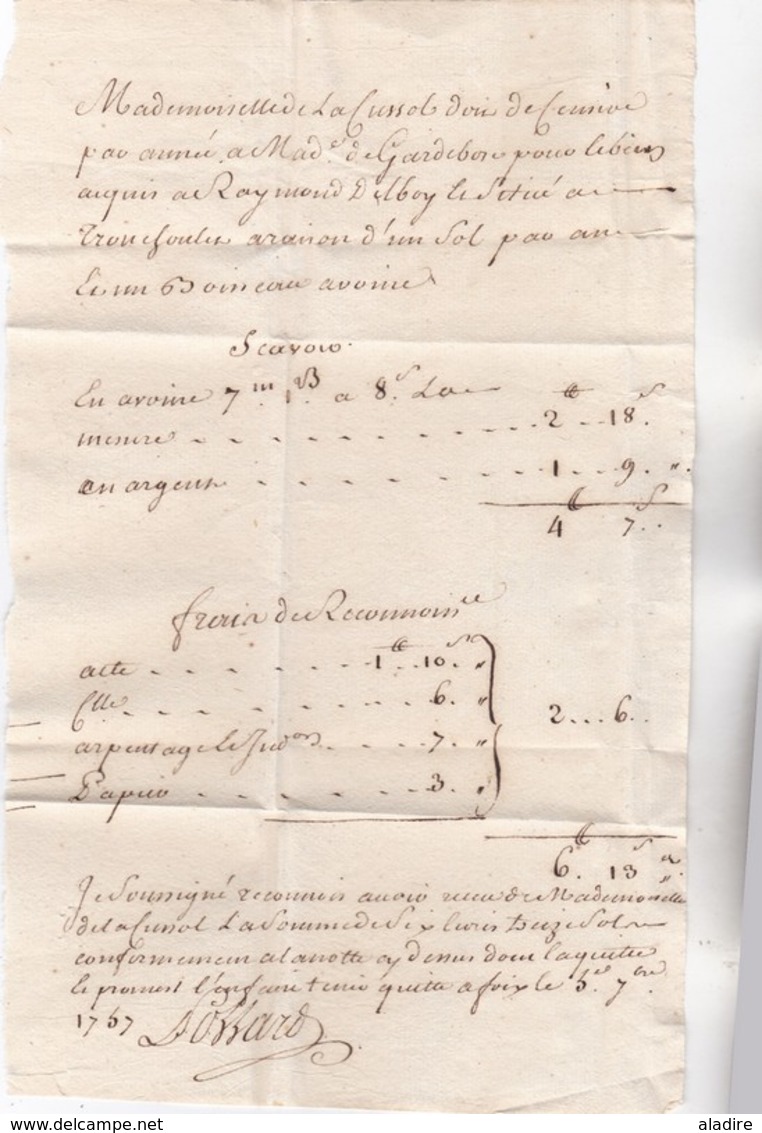 Mademoiselle de La Cussol doit de Censive
par année a Mad.e de Gardebosc pour le bien
acquis a Raymond Delboy le Situé a
a raison d'un Sol par an
Et un Boisseau avoine
Scavoir.
En avoine 7 m. 1 B. a 8 s. La ₶ s
mesure 2 18.
en argent 1 9 "
₶ s
4 7
frais de Reconnoisce
₶ s
acte 1 10 "
6 " 2 6
arpentage et 7 "
Papier 3 "
₶ s
6. 13 "
Je Soussigné reconnois avoir receu de Mademoiselle
de la Cussol La Somme de Six livres treize Sols
conformement a la notte cy dessus dont la quitte
et promest l'en faire tenir quitte a foix le 5.e 7bre
1757
aladire
delcampe.net